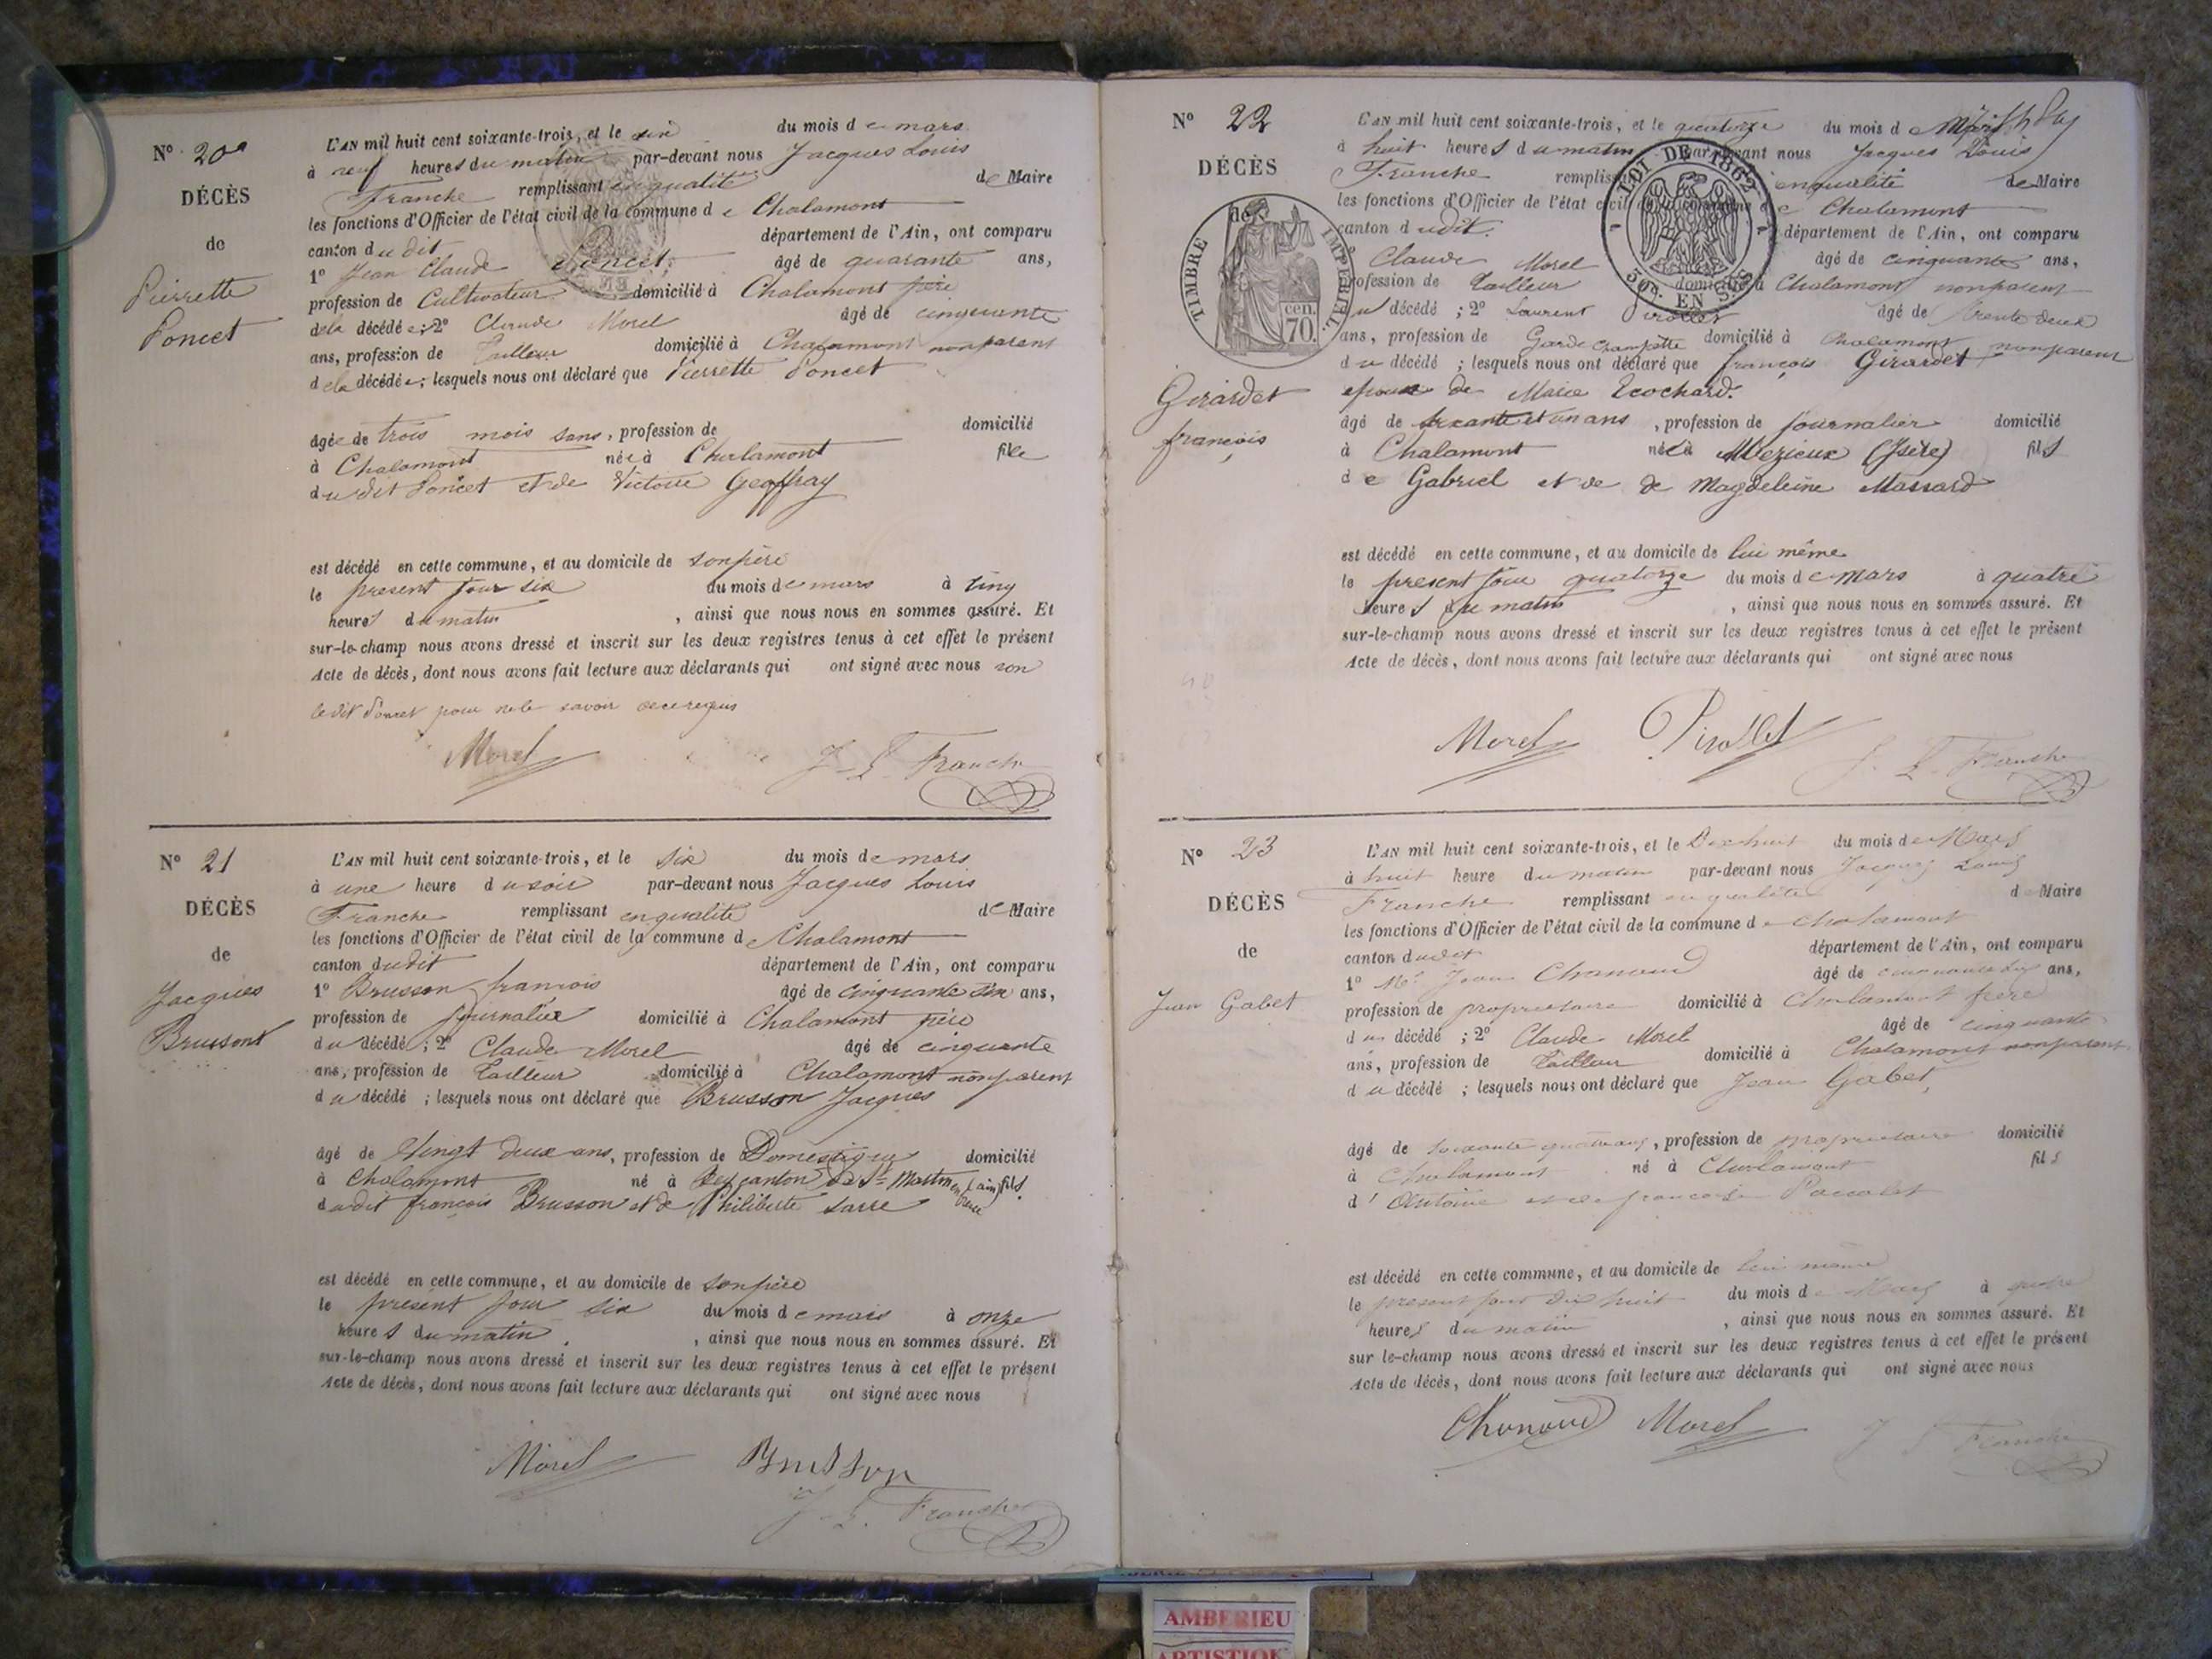 N° 20
DÉCÈS
de
Pierrette
Poncet
L'AN mil huit cent soixante-trois, et le six du mois de mars
à neuf heures du matin par-devant nous Jacques Louis
Franche remplissant en qualité de Maire
les fonctions d'Officier de l'état civil de la commune de Chalamont
canton dudit département de l'Ain, ont comparu
1° Jean Claude Poncet, âgé de quarante ans,
profession de Cultivateur domicilié à Chalamont père
dela décédée; 2° Claude Morel âgé de cinquante
ans, profession de Tailleur domicilié à Chalamont non parent
dela décédée; lesquels nous ont déclaré que Pierrette Poncet
âgée de trois mois sans, profession de domicilié
à Chalamont née à Chalamont fille
dudit Poncet et de Victoire Geoffray
est décédé en cette commune, et au domicile de son père
le présent jour six du mois de mars à cinq
heures du matin, ainsi que nous nous en sommes assuré. Et
sur-le-champ nous avons dressé et inscrit sur les deux registres tenus à cet effet le présent
Acte de décès, dont nous avons fait lecture aux déclarants qui ont signé avec nous non
ledit Poncet pour ne le savoir de ce requis
Morel J-L. Franche
N° 21
DÉCÈS
de
Jacques
Brusson
L'AN mil huit cent soixante-trois, et le six du mois de mars
à une heure du soir par-devant nous Jacques Louis
Franche remplissant en qualité de Maire
les fonctions d'Officier de l'état civil de la commune de Chalamont
canton dudit département de l'Ain, ont comparu
1° Brusson françois âgé de cinquante six ans,
profession de journalier domicilié à Chalamont père
du décédé; 2° Claude Morel âgé de cinquante
ans, profession de Tailleur domicilié à Chalamont non parent
du décédé; lesquels nous ont déclaré que Brusson Jacques
âgé de Vingt deux ans, profession de Domestique domicilié
à Chalamont né à canton de St Martin (ain) fils
dudit françois Brusson et de Philiberte Sarre
est décédé en cette commune, et au domicile de son père
le présent jour six du mois de mars à onze
heures du matin, ainsi que nous nous en sommes assuré. Et
sur-le-champ nous avons dressé et inscrit sur les deux registres tenus à cet effet le présent
Acte de décès, dont nous avons fait lecture aux déclarants qui ont signé avec nous
Morel Brusson
J-L. Franche
N° 22
DÉCÈS
de
Girardet
françois
TIMBRE IMPÉRIAL.
70. cen.
LOI DE 1862
EN SUS
L'AN mil huit cent soixante-trois, et le quatorze du mois de
à huit heures du matin par-devant nous Jacques Louis
Franche remplissant en qualité de Maire
les fonctions d'Officier de l'état civil de la commune de Chalamont
canton dudit. département de l'Ain, ont comparu
1° Claude Morel âgé de cinquante ans,
profession de Tailleur domicilié à Chalamont non parent
du décédé; 2° Laurent Pirollet âgé de trente deux
ans, profession de Garde Champêtre domicilié à Chalamont non parent
du décédé; lesquels nous ont déclaré que françois Girardet
époux de Marie Ecochard.
âgé de soixante et un ans, profession de journalier domicilié
à Chalamont né à Mezieux (Isère) fils
de Gabriel et de de Magdeleine Massard
est décédé en cette commune, et au domicile de lui même
le présent jour quatorze du mois de mars à quatre
heures du matin, ainsi que nous nous en sommes assuré. Et
sur-le-champ nous avons dressé et inscrit sur les deux registres tenus à cet effet le présent
Acte de décès, dont nous avons fait lecture aux déclarants qui ont signé avec nous
Morel Pirollet J. L. Franche
N° 23
DÉCÈS
de
Jean Gabet
L'AN mil huit cent soixante-trois, et le Dix huit du mois de Mars
à huit heure du matin par-devant nous Jacques Louis
Franche remplissant en qualité de Maire
les fonctions d'Officier de l'état civil de la commune de Chalamont
canton dudit département de l'Ain, ont comparu
1° Mr Jean Chanoud âgé de ans,
profession de propriétaire domicilié à Chalamont frère
du décédé; 2° Claude Morel âgé de cinquante
ans, profession de Tailleur domicilié à Chalamont non parent
du décédé; lesquels nous ont déclaré que Jean Gabet,
âgé de soixante quatre ans, profession de propriétaire domicilié
à Chalamont né à Chalamont fils
d'Antoine et de françoise
est décédé en cette commune, et au domicile de lui même
le présent jour Dix huit du mois de Mars à quatre
heures du matin, ainsi que nous nous en sommes assuré. Et
sur le-champ nous avons dressé et inscrit sur les deux registres tenus à cet effet le présent
Acte de décès, dont nous avons fait lecture aux déclarants qui ont signé avec nous
Chanoud Morel J L Franche
AMBERIEU